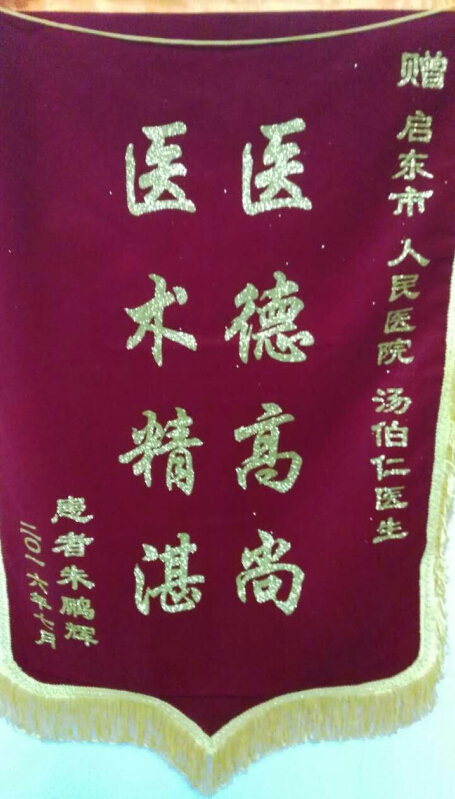 赠 启东市 人民医院 汤伯仁医生
医德高尚
医术精湛
患者朱鹏辉
二〇一六年七月